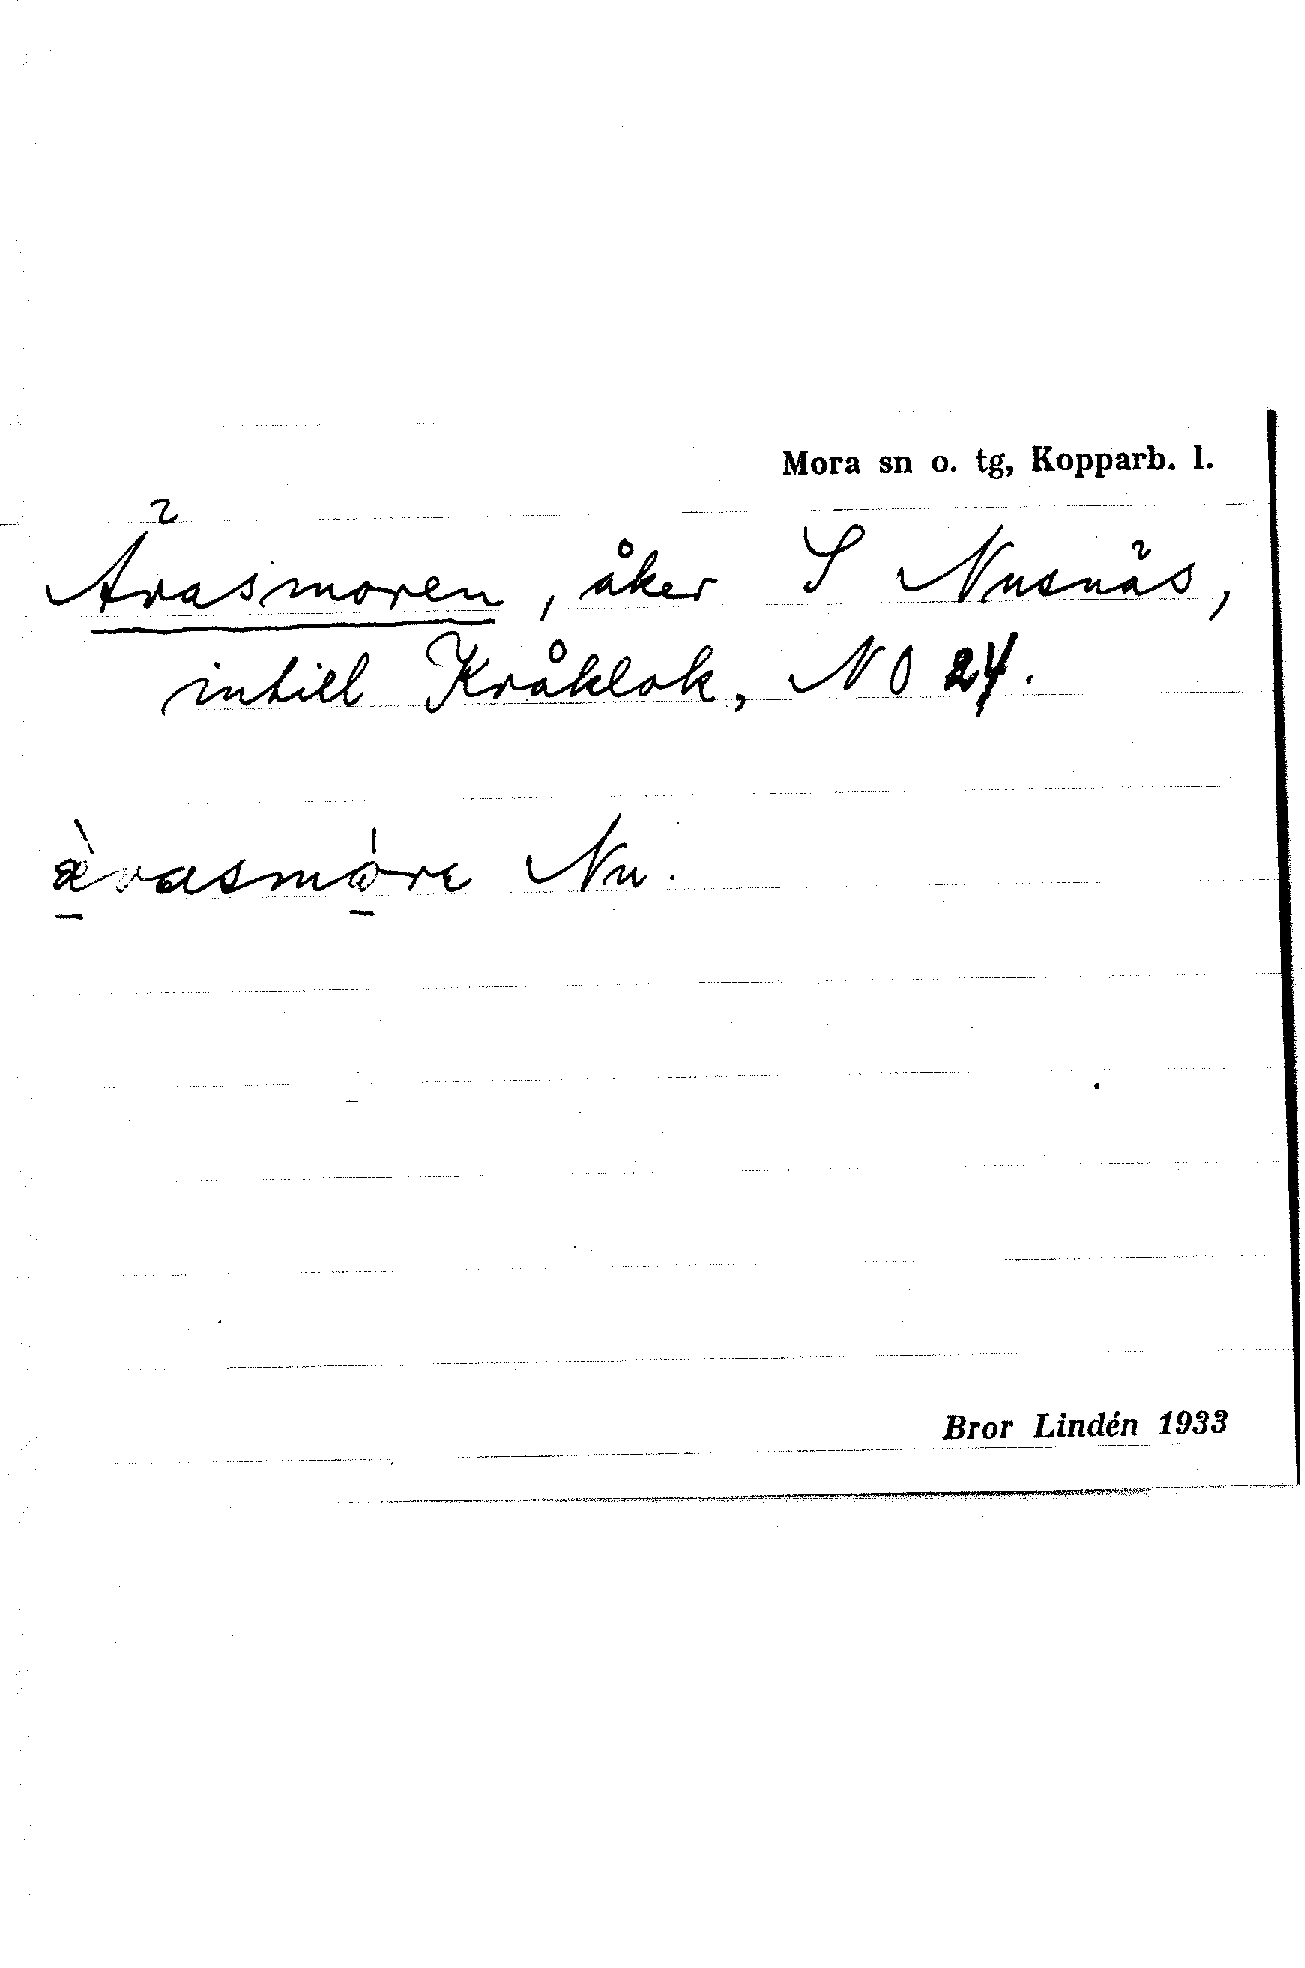 Mora sn o. tg, Kopparb. l.
Ärasmoren, åker S Nusnäs,
intill Kråklok, NO 24.
æ̀rasmóre Nu.
Bror Lindén 1933